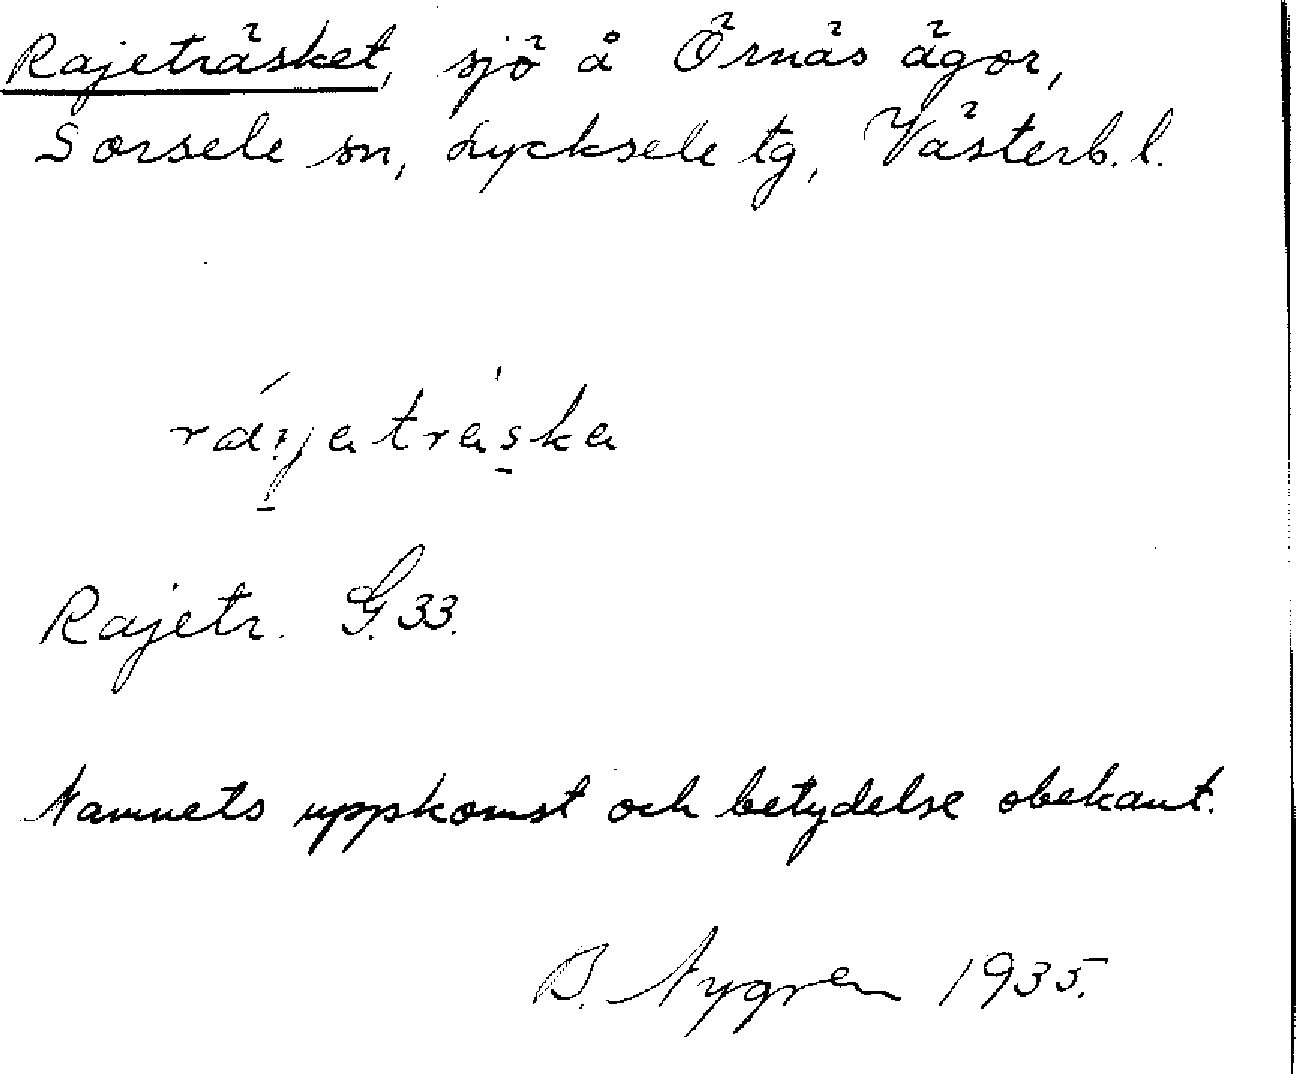 Rajeträsket, sjö å Örnäs ägor,
Sorsele sn, Lycksele tg, Västerb. l.
Rajetr. G.33.
Namnets uppkomst och betydelse obekant.
B. Nygren 1935.